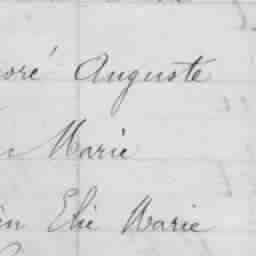 oré Auguste
Marie
in Elie Marie